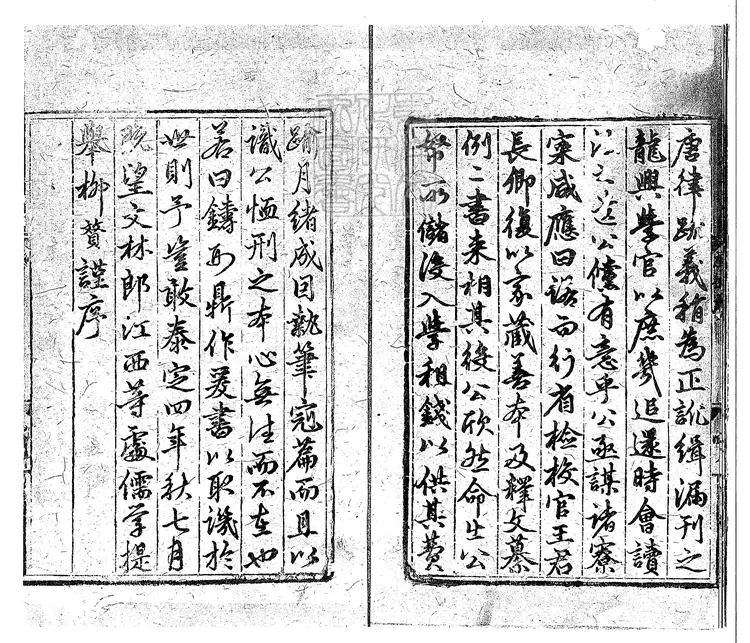 唐律疏義稍為正訛緝漏刊之
龍興學官以庶幾追還時會讀
法之遺公儻有意乎公亟謀諸寮
寀咸應曰諾而行省檢校官王君
長卿復以家藏善本及釋文纂
例二書来相其役公欣然命出公
帑所儲沒入學租錢以供其費
踰月緒成因執筆冠篇而且以
識公恤刑之本心無往而不在也
若曰鑄刑鼎作爰書以取譏於
世則予豈敢泰定四年秋七月
既望文林郎江西等處儒學提
舉柳贇謹序